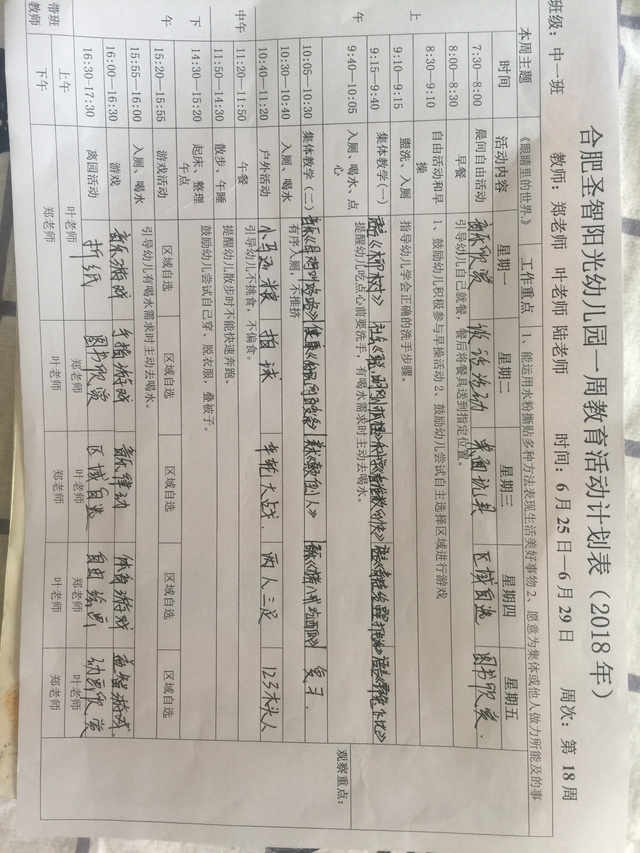 合肥圣智阳光幼儿园一周教育活动计划表（2018年）
班级：中一班 教师：郑老师 叶老师 陆老师 时间：6月25日—6月29日 周次：第18周
本周主题 《眼睛里的世界》 工作重点 1、能运用水粉撕贴多种方法表现生活美好事物2、愿意为集体或他人做力所能及的事
时间 活动内容 星期一 星期二 星期三 星期四 星期五
观察重点：
上
午
7:30—8:00 晨间自由活动 音乐欣赏 谈话活动 桌面玩具 区域自选 图书欣赏
8:00—8:30 早餐 引导幼儿自己就餐，餐后将餐具送到指定位置。
8:30—9:10 自由活动和早操 1、鼓励幼儿积极参与早操活动2、鼓励幼儿尝试自主选择区域进行游戏
9:10—9:15 盥洗、入厕 指导幼儿学会正确的洗手步骤。
9:15—9:40 集体教学(一)
9:40—10:05 入厕、喝水、点心 提醒幼儿吃点心前要洗手，有喝水需求时主动去喝水。
10:05—10:30 集体教学（二） 复习
10:30—10:40 入厕、喝水 有序入厕，不推挤
10:40—11:20 户外活动 小马运粮 拍球 车轮大战 两人三足 123木头人
中午
11:20—11:50 午餐 引导幼儿不挑食，不偏食。
11:50—14:30 散步、午睡 提醒幼儿散步时不能快速奔跑。
下
午
14:30—15:20 起床、整理午点 鼓励幼儿尝试自己穿、脱衣服，叠被子。
15:20—15:55 游戏活动 区域自选 区域自选 区域自选 区域自选 区域自选
15:55—16:00 入厕、喝水 引导幼儿有喝水需求时主动去喝水。
16:00—16:30 游戏 音乐游戏 手指游戏 音乐律动 体育游戏 益智游戏
16:30—17:30 离园活动 折纸 图书欣赏 区域自选 自由绘画 动画欣赏
带班教师 上午 叶老师 郑老师 叶老师 郑老师 叶老师
下午 郑老师 叶老师 郑老师 叶老师 郑老师